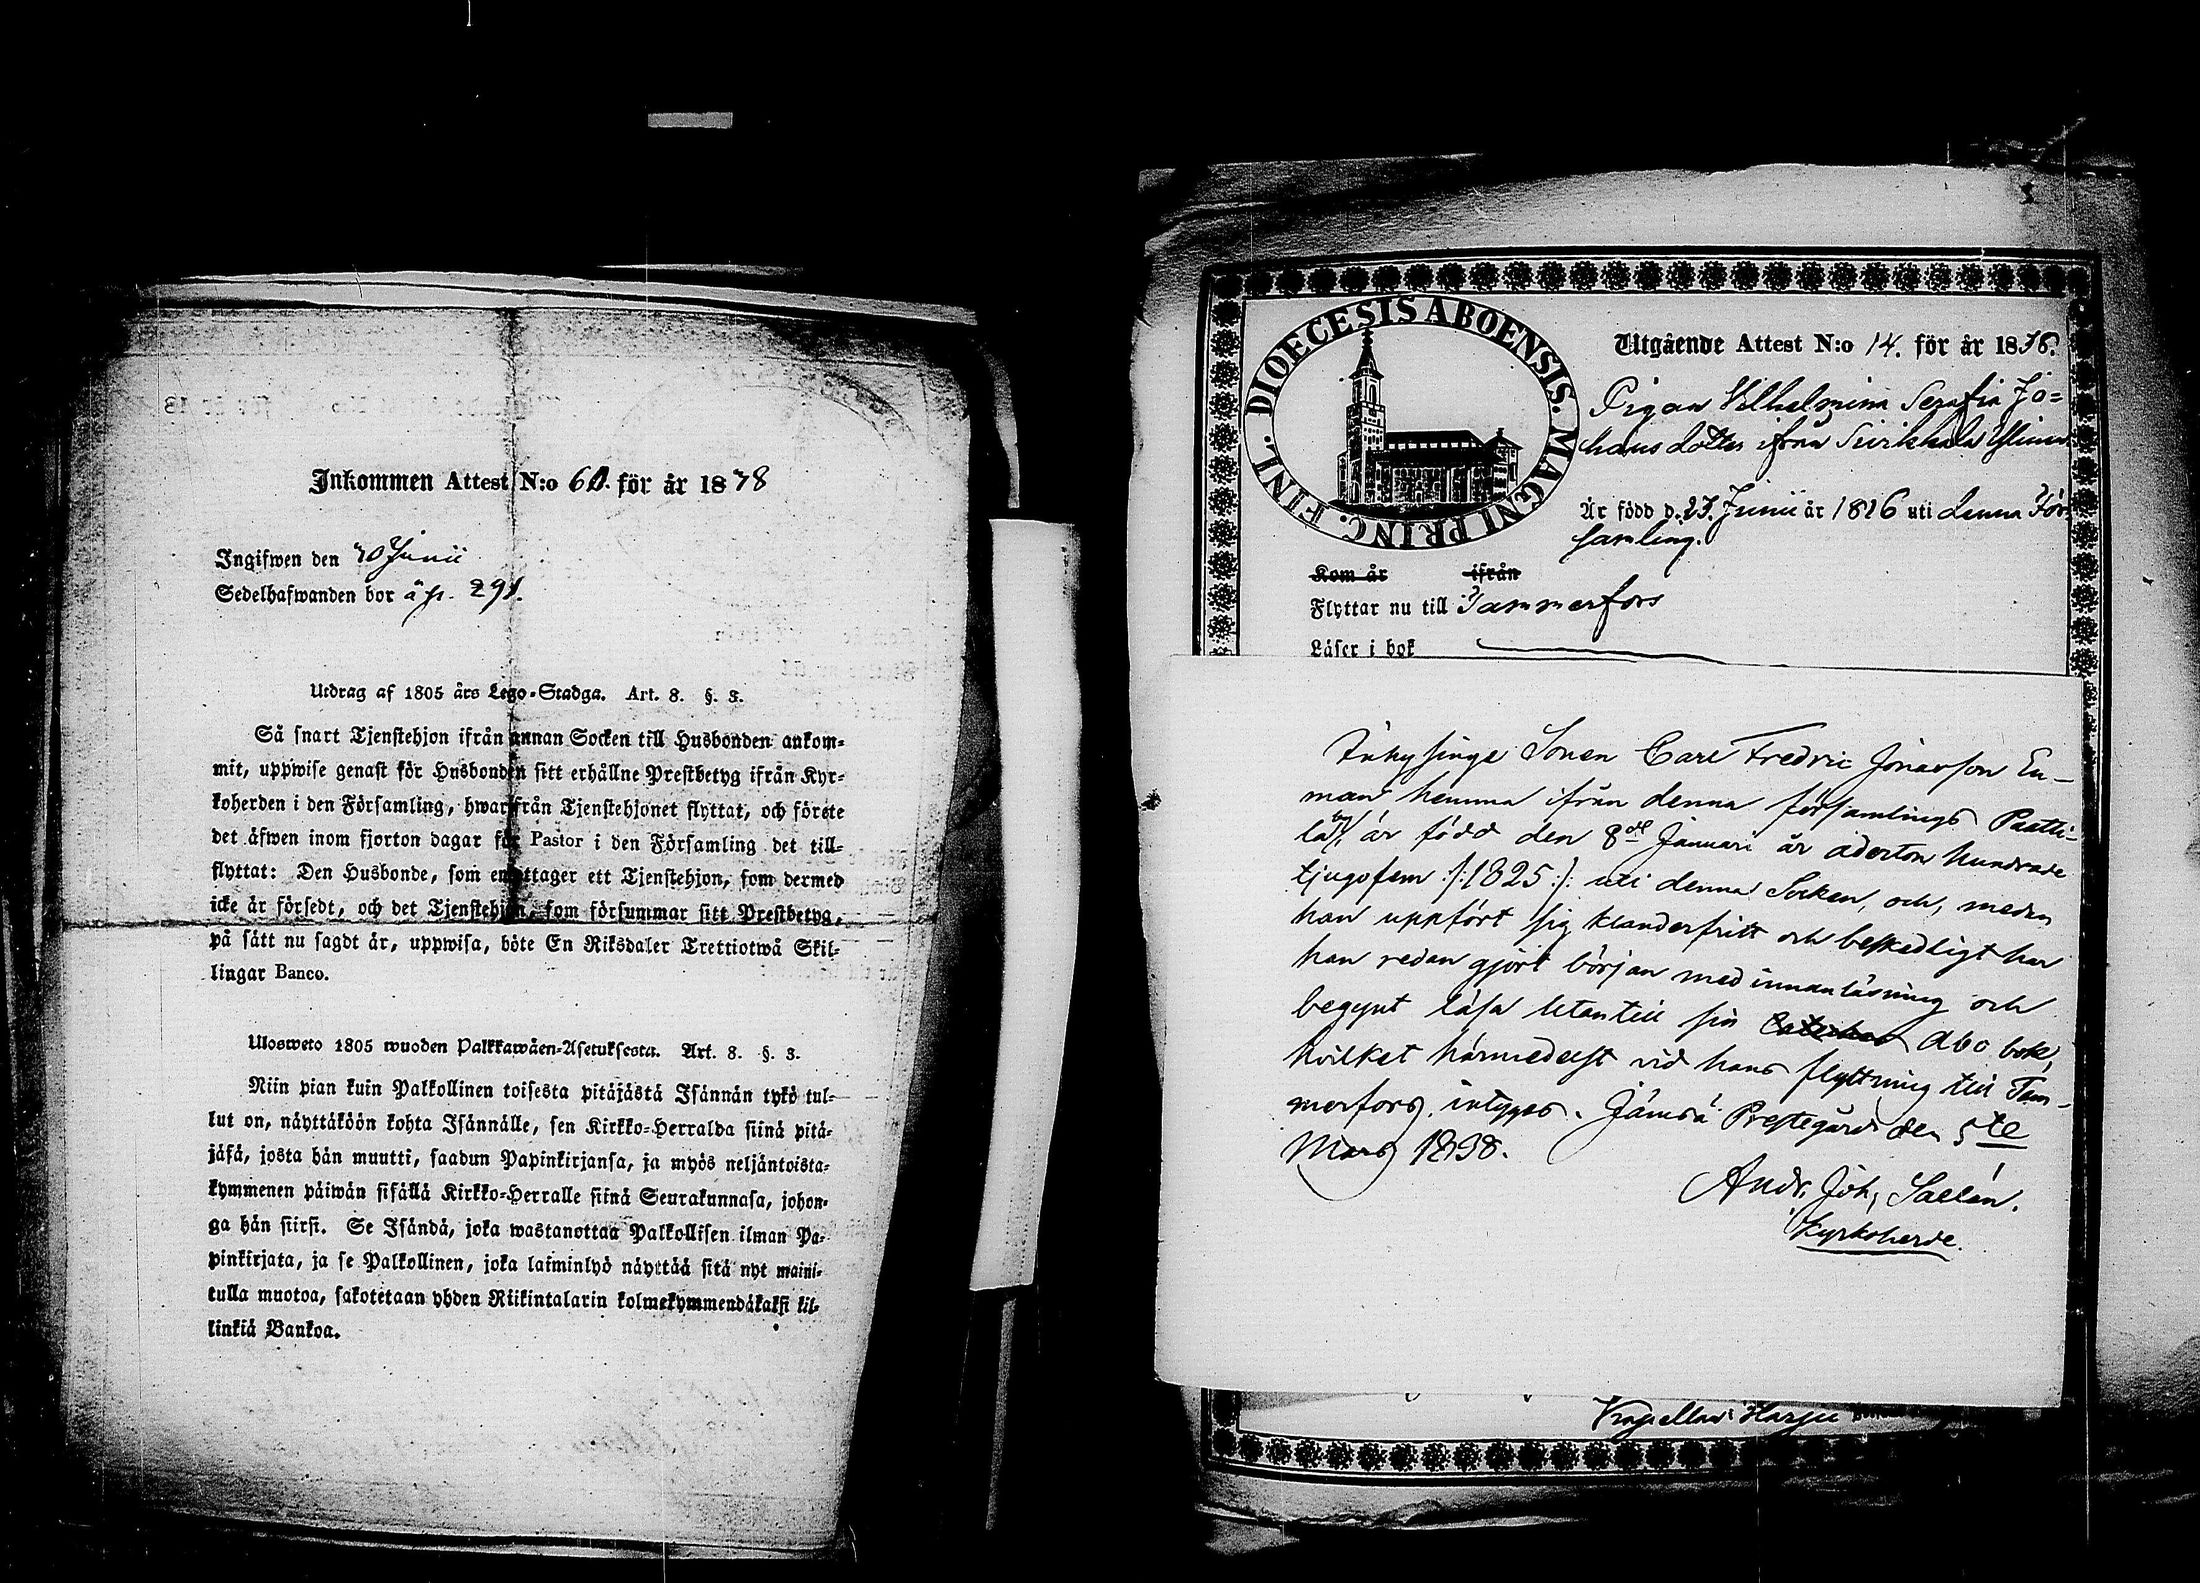 Inkommen Attest N:o 60. för år 1838
Ingifwen den 30 Junii
Sedelhafwanden bor å p. 291.
Utdrag af 1805 års Lego-Stadga. Art. 8. §. 3.
Så snart Tjenstehjon ifrån annan Socken till Husbonden ankom-
mit, uppwise genast för Husbonden sitt erhållne Prestbetyg ifrån Kyr-
koherden i den Församling, hwarifrån Tjenstehjonet flyttat, och förete
det äfwen inom fjorton dagar för Pastor i den Församling det till-
flyttat: Den Husbonde, som emottager ett Tjenstehjon, som dermed
icke är försedt, och det Tjenstehjon, som försummar sitt Prestbetyg,
på sätt nu sagdt är, uppwisa, böte En Riksdaler Trettiotwå Skil-
lingar Banco.
Ulosweto 1805 wuoden Palkkawäen-Asetuksesta. Art. 8. §. 3.
Niin pian kuin Palkollinen toisesta pitäjästä Isännän tykö tul-
lut on, näyttäköön kohta Isännälle, sen Kirkko-Herralda siinä pitä-
jäsä, josta hän muutti, saadun Papinkirjansa, ja myös neljäntoista-
kymmenen päiwän sisällä Kirkko-Herralle siinä Seurakunnasa, johon-
ga hän siirsi. Se Isändä, joka wastanottaa Palkollisen ilman Pa-
pinkirjata, ja se Palkollinen, joka laiminlyö näyttää sitä nyt maini-
tulla muotoa, sakotetaan yhden Riikintalarin kolmekymmendäkaksi kil-
linkiä Bankoa.
DIOECESIS ABOENSIS. MAGNI PRINC. FINL.
Utgående Attest N:o 14. för år 1838.
Pigan Wilhelmina Serafia Jo=
hansdotter ifrån Siirikkala
Är född d. 23. Junii år 1816 uti denna För
samling.
Kom år ifrån
Flyttar nu till Tammerfors
Läser i bok
Inhysinge Sonen Carl Fredric Jonasson En-
man hemma ifrån denna församlings Partti-
la by, är född den 8de Januari år aderton hundrade
tjugofem /:1825:/ uti denna Socken, och, medan
han uppfört sig klanderfritt och beskedligt har
han redan gjort början med innanläsning och
begynt läsa utantill sin Abc bok,
hvilket härmedelst vid hans flyttning till Tam-
merfors intygas. Jämsä Prestegård den 5te
Mars 1838.
Andr. Joh, Sallén.
Kyrkoherde.
Kapellan i Harju